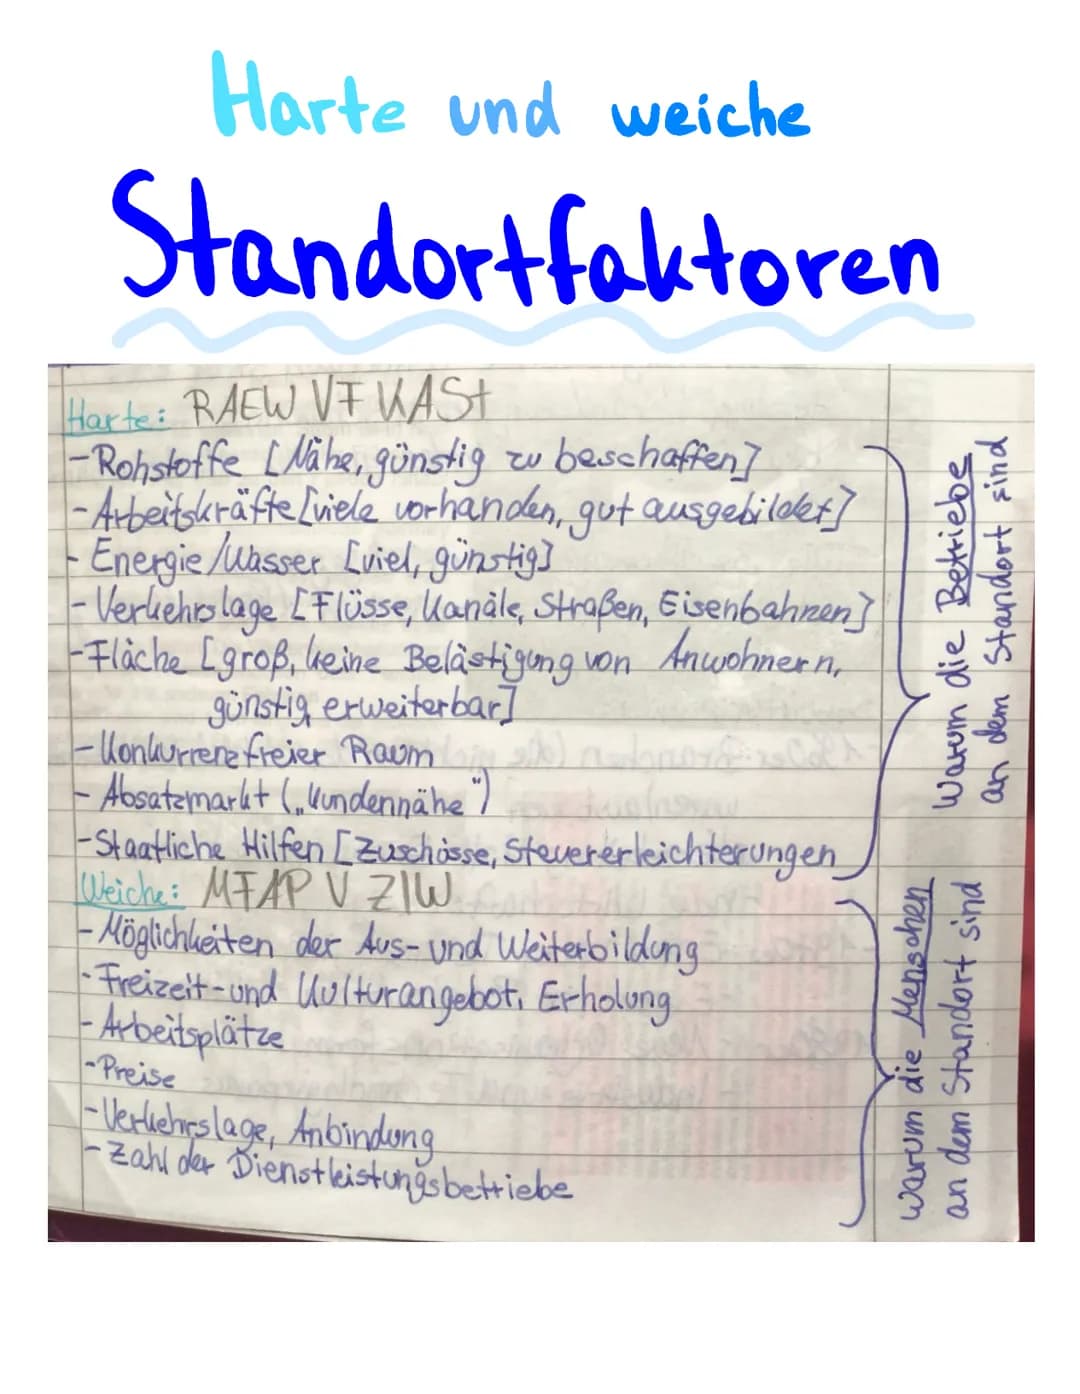 Harte und weiche
Standortfaktoren
Harte: RAEW VF KASt
- Rohstoffe [Nähe, günstig zu beschaffen]
- Arbeitskräfte [viele vorhanden, gut ausgebildet]
- Energie/Wasser [viel, günstig]
- Verkehrslage [Flüsse, Kanäle, Straßen, Eisenbahnen]
- Fläche [groß, keine Belästigung von Anwohnern,
günstig, erweiterbar]
- Konkurrenzfreier Raum
- Absatzmarkt („Kundennähe“)
- Staatliche Hilfen [Zuschüsse, Steuererleichterungen
Warum die Betriebe
an dem Standort sind
Weiche: MFAP V ZIW
- Möglichkeiten der Aus- und Weiterbildung
- Freizeit- und Kulturangebot, Erholung
- Arbeitsplätze
- Preise
- Verkehrslage, Anbindung
- Zahl der Dienstleistungsbetriebe
Warum die Menschen
an dem Standort sind